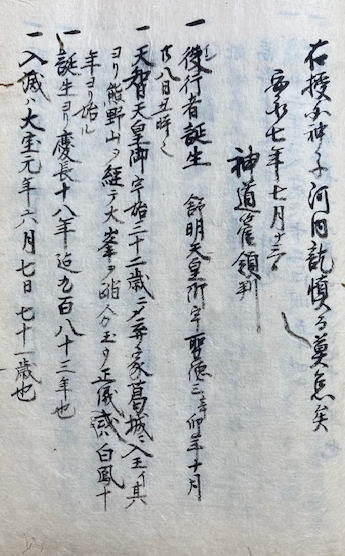 右授与神子河内乾慎而莫怠矣
宝永七年七月十三日
神道管領判
一役行者誕生 舒明天皇御宇聖徳三辛卯年十月
廿八日丑時也
一天智天皇御宇始三十二歳ニ而弃家葛城ニ入玉イ其
ヨリ熊野山ヲ経テ大峯ヲ踏分玉フ正儀或ハ白鳳十
年ヨリ始ル
一誕生ヨリ慶長十八年迄九百八十三年也
一入滅ハ大宝元年六月七日七十一歳也